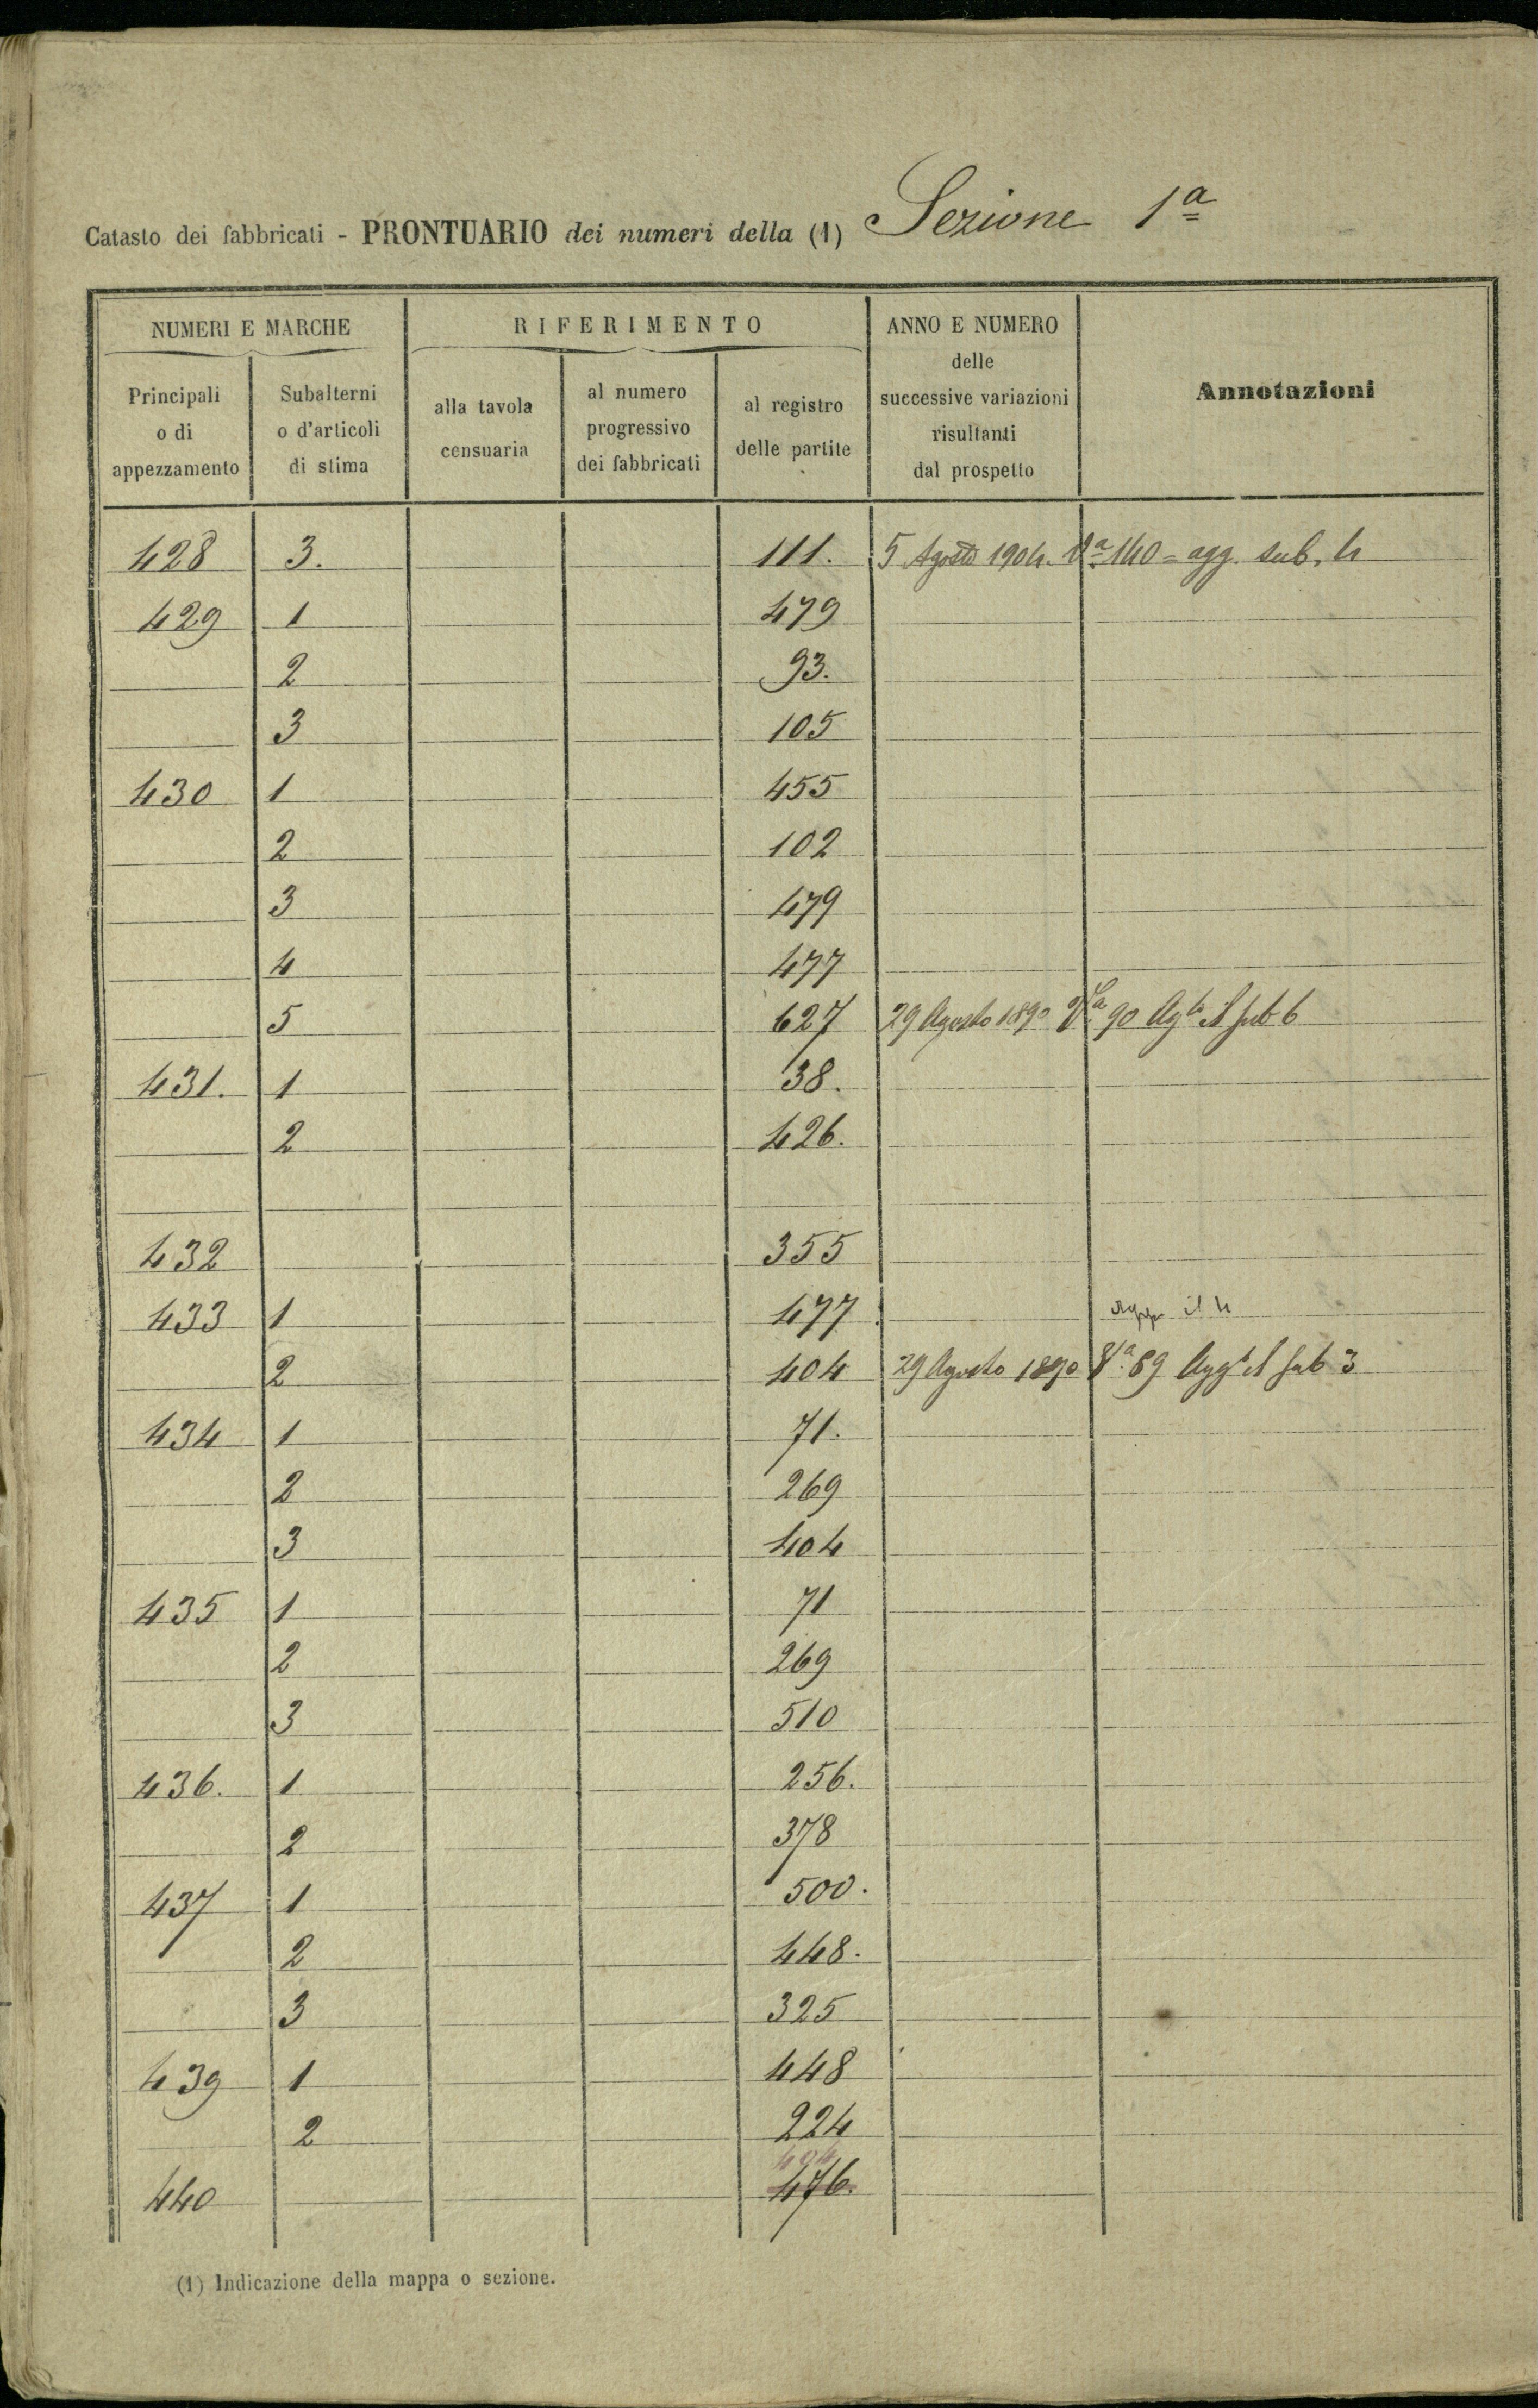 Catasto dei fabbricati - PRONTUARIO dei numeri della (1) Sezione 1ª
NUMERI E MARCHE
RIFERIMENTO
ANNO E NUMERO
delle
successive variazioni
risultanti
dal prospetto
Annotazioni
Principali
o di
appezzamento
Subalterni
o d'articoli
di stima
alla tavola
censuaria
al numero
progressivo
dei fabbricati
al registro
delle partite
428 3. 111. 5 Agosto 1904. Vª 140 = agg. sub. 4
429 1 479
2 93.
3 105
430 1 455
2 102
3 479
4 477
5 627 29 Agosto 1890 Vª 90 Agto il sub 6
431. 1 38.
2 426.
432 355
433 1 477 agg il 4
2 404 29 Agosto 1890 Vª 89 Aggto il sub 3
434 1 71.
2 269
3 404
435 1 71
2 269
3 510
436. 1 256.
2 378
437 1 500.
2 448.
3 325
439 1 448
2 224
440 476.
(1) Indicazione della mappa o sezione.